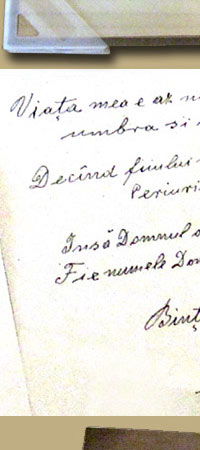 Viața mea e ax
umbra si
Decînd fiului
Periuri
Insă Domnul
Fie numele Dom
Binț